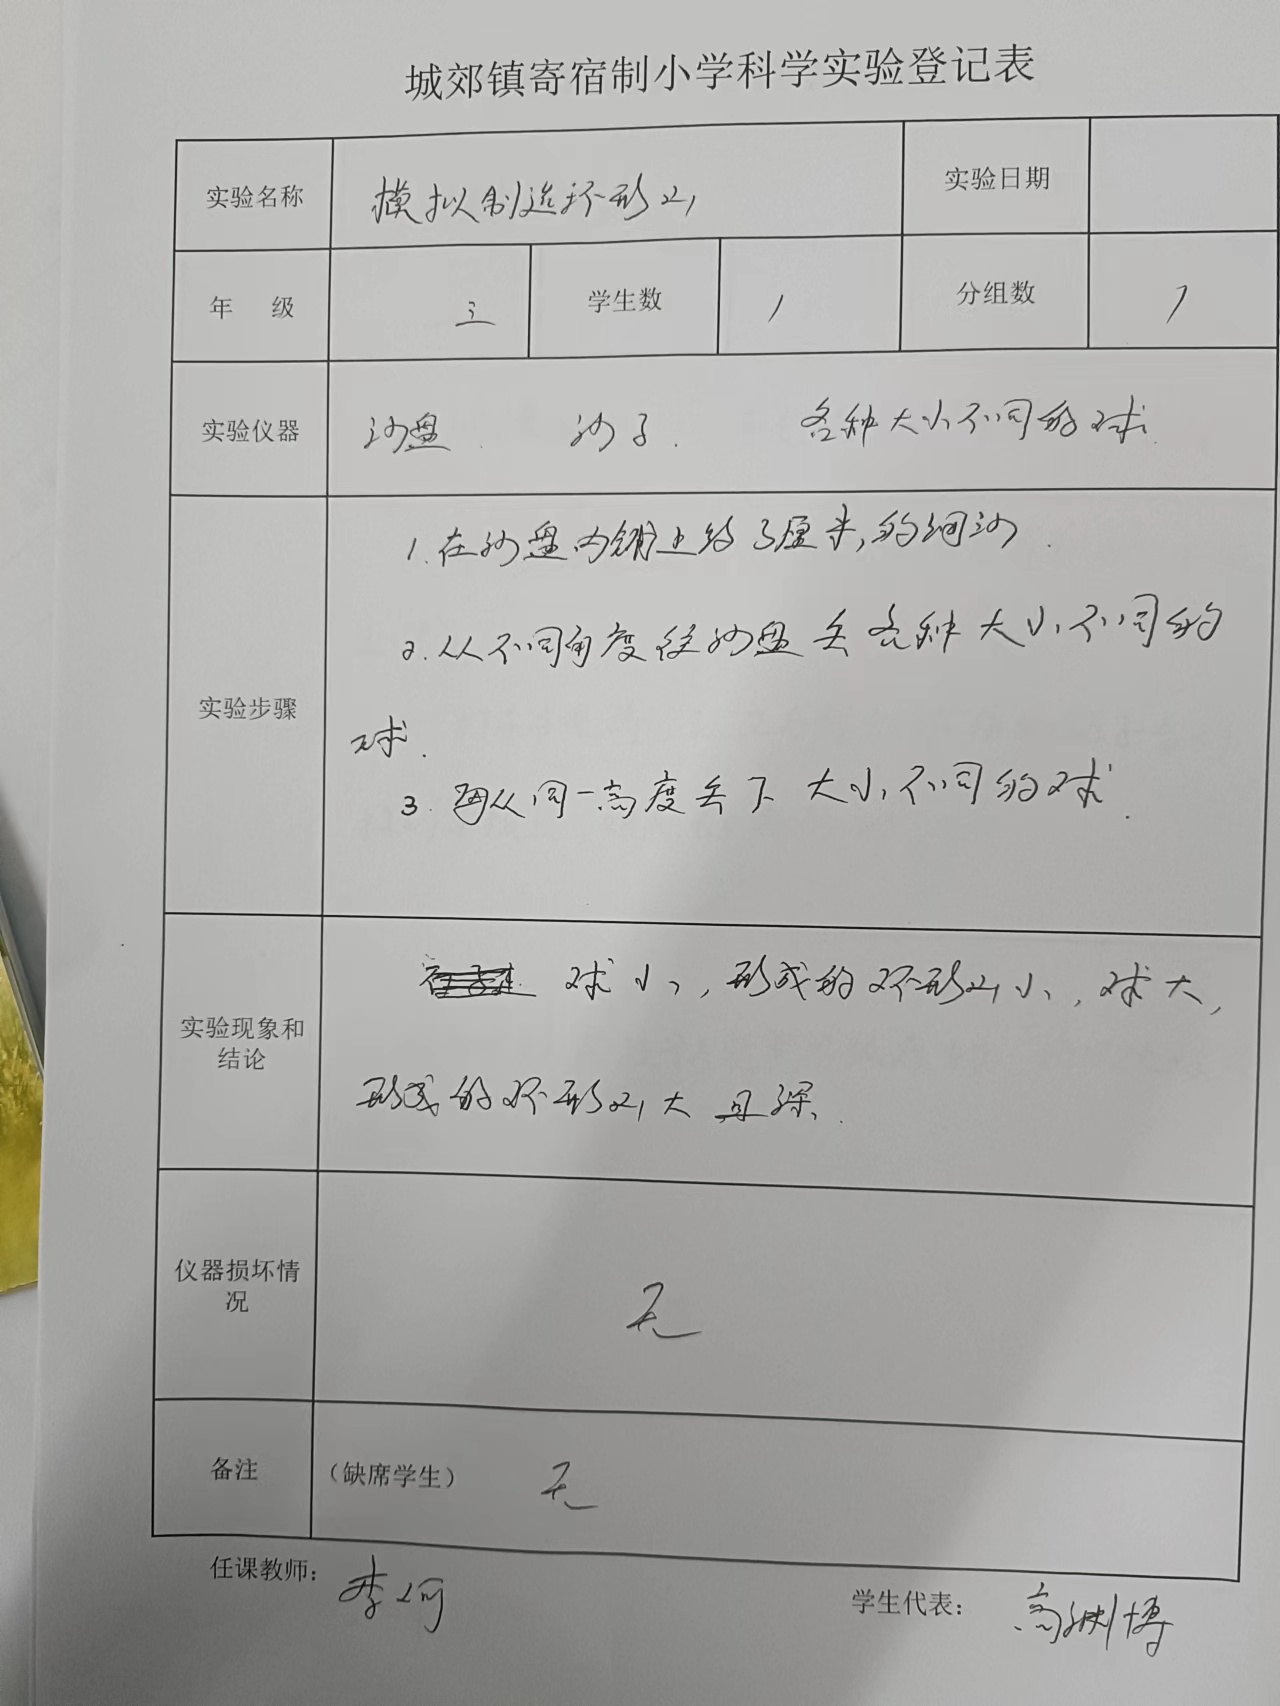 城郊镇寄宿制小学科学实验登记表
实验名称 模拟制造环形山 实验日期
年 级 三 学生数 1 分组数 1
实验仪器 沙盘. 沙子. 各种大小不同的球.
1.在沙盘内铺上约3厘米的细沙.
2.从不同角度往沙盘丢各种大小不同的
实验步骤
球.
3.再从同一高度丢下大小不同的球.
球小,形成的环形山小,球大,
实验现象和
结论
形成的环形山大且深.
仪器损坏情
况
无
备注 (缺席学生) 无
任课教师: 李
学生代表: 高渊博